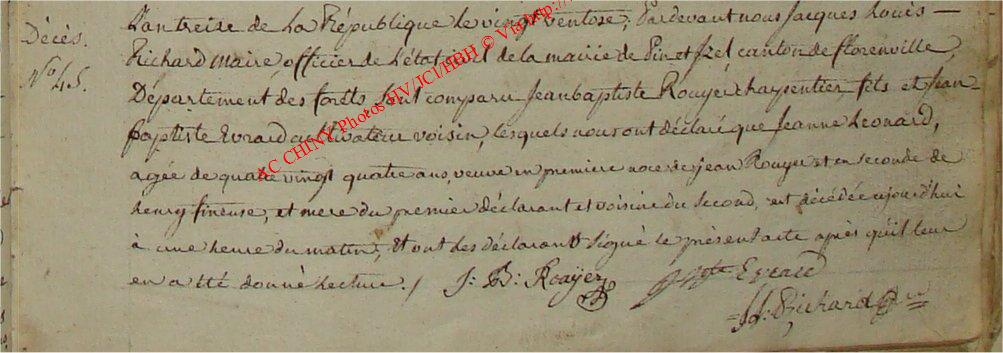 Décès.
N.º 45.
L'an treize de la République le vingt ventose, Pardevant nous Jacques Louis
Richard maire, officier de l'état civil de la mairie de Pin et Izel canton de florenville,
Département des forêts, sont comparu Jean baptiste Rouyer charpentier, fils et Jean
baptiste Evrard cultivateur voisin, lesquels nous ont déclaré que Jeanne Leonard,
agée de quatre vingt quatre ans, veuve en premiere noce de jean Rouyer et en seconde de
henry fineuse, et mere du premier déclarant et voisine du second, est décédée aujourd'hui
à une heure du matin, Et ont les déclarants signé le présent acte après qu'il leur
en a été donné lecture./ J: B: Roüyer
Evrard
J: L: Richard
AC CHINY Photos HV/JCI/HBH © Via http://